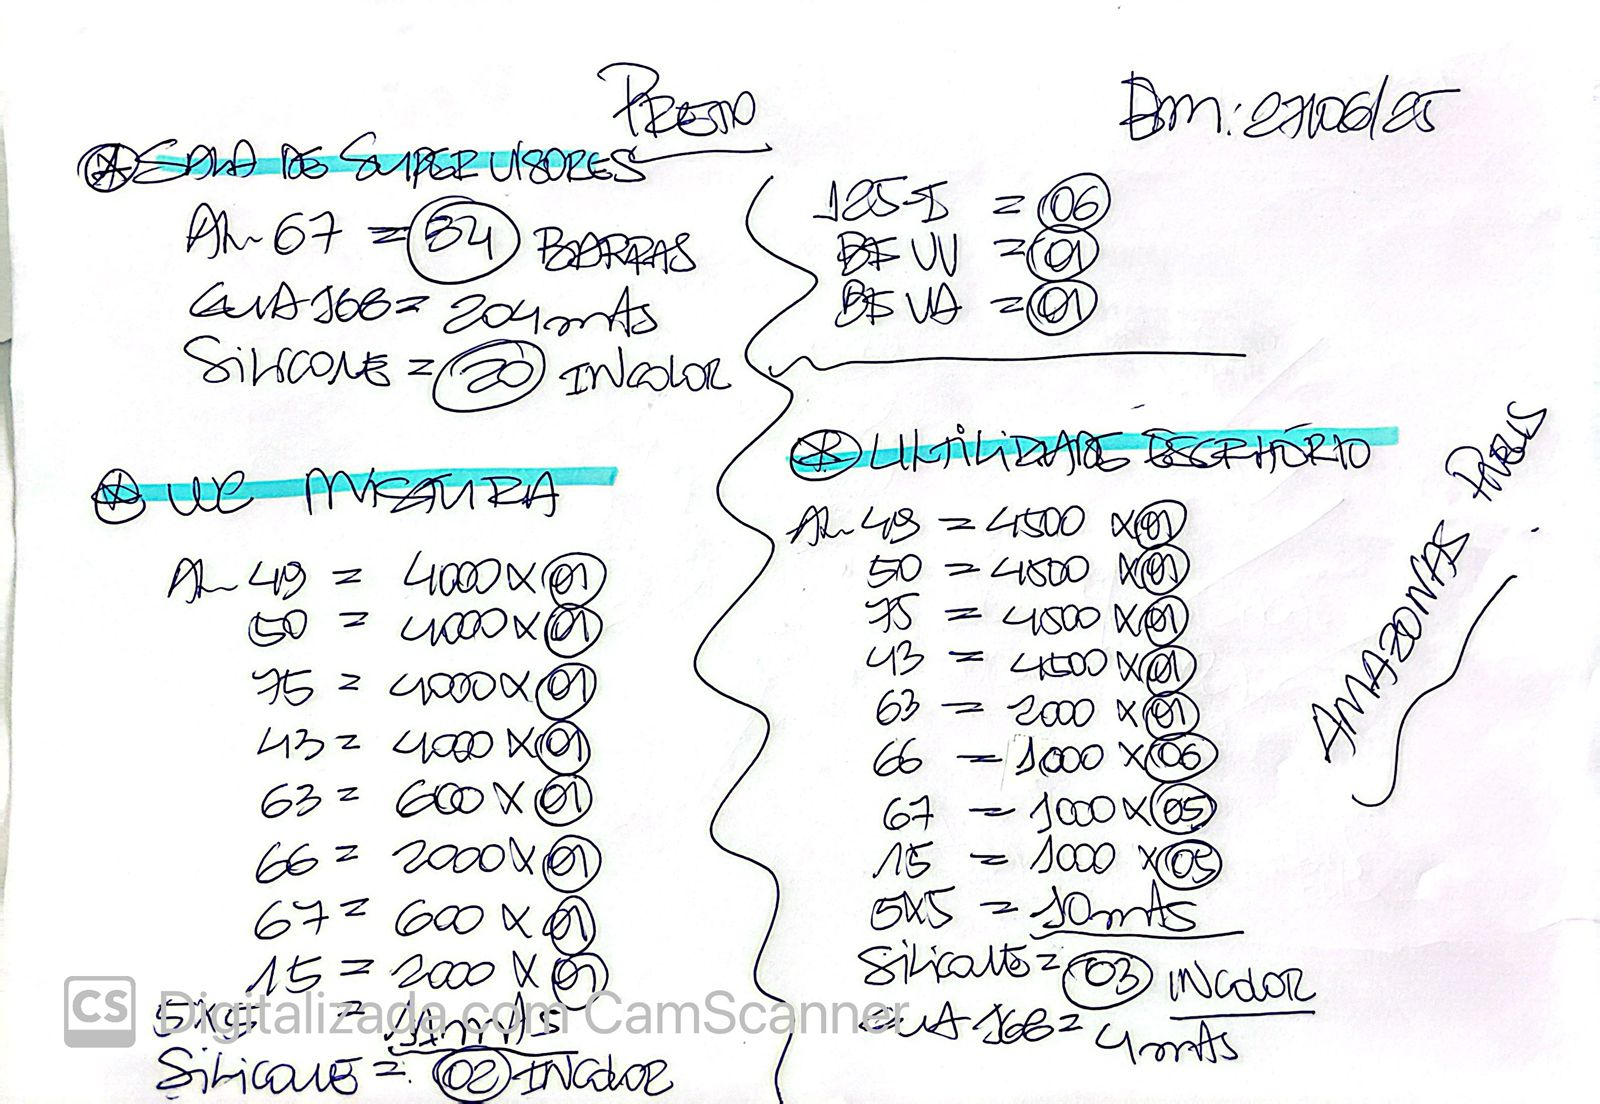 PRETO
Em: 27/06/25
SALA DE SUPERVISORES
AL 67 = 34 BARRAS
GUA 168 = 204 mts
SILICONE = 20 INCOLOR
125-I = 06
BF VV = 01
BF VA = 01
WC MISTURA
AL 49 = 4000 X 01
50 = 4000 X 01
75 = 4000 X 01
43 = 4000 X 01
63 = 600 X 01
66 = 2000 X 01
67 = 600 X 01
15 = 2000 X 01
5X5 = mts
SILICONE = 02 INCOLOR
UTILIDADE ESCRITÓRIO
AL 49 = 4500 X 01
50 = 4500 X 01
75 = 4500 X 01
43 = 4500 X 01
63 = 2000 X 01
66 = 1000 X 06
67 = 1000 X 05
15 = 1000 X 05
5X5 = 10 mts
SILICONE = 03 INCOLOR
GUA 168 = 4 mts
AMAZONAS
CS Digitalizada com CamScanner